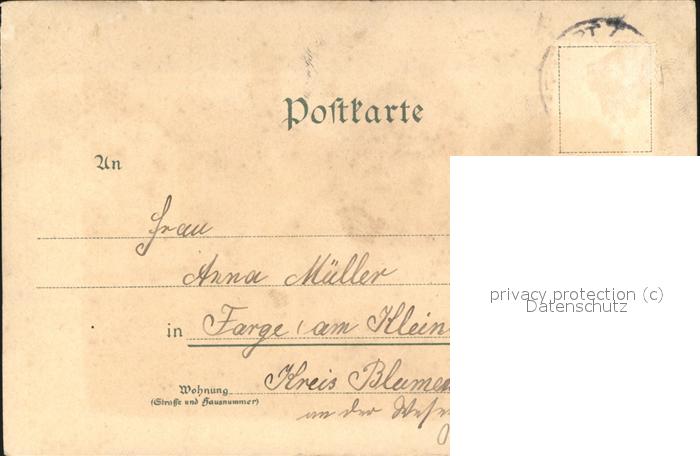 Postkarte
An
Frau
Anna Müller
in Farge (am Klein
Wohnung Kreis Blumen
(Straße und Hausnummer)
an der Wese
privacy protection (c)
Datenschutz